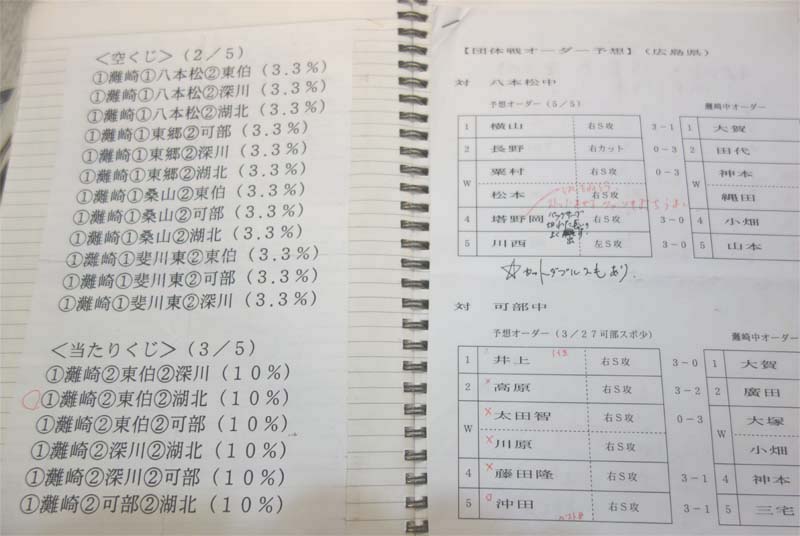 ＜空くじ＞（２/５）
①灘崎①八本松②東伯（３.３％）
①灘崎①八本松②深川（３.３％）
①灘崎①八本松②湖北（３.３％）
①灘崎①東郷②可部（３.３％）
①灘崎①東郷②深川（３.３％）
①灘崎①東郷②湖北（３.３％）
①灘崎①桑山②東伯（３.３％）
①灘崎①桑山②可部（３.３％）
①灘崎①桑山②湖北（３.３％）
①灘崎①斐川東②東伯（３.３％）
①灘崎①斐川東②可部（３.３％）
①灘崎①斐川東②深川（３.３％）
＜当たりくじ＞（３/５）
①灘崎②東伯②深川（１０％）
①灘崎②東伯②湖北（１０％）
①灘崎②東伯②可部（１０％）
①灘崎②深川②湖北（１０％）
①灘崎②深川②可部（１０％）
①灘崎②可部②湖北（１０％）
【団体戦オーダー予想】（広島県）
対 八本松中
予想オーダー（５/５） 灘崎中オーダー
1 横山 右Ｓ攻 ３-１ 1 大賀
2 長野 右カット ０-３ 2 田代
W 粟村 右Ｓ攻 ０-３ W 神本
松本 右Ｓ攻 縄田
4 塔野岡 右Ｓ攻 ３-０ 4 小畑
バックサーブ
切れた長い
よく出す
5 川西 左Ｓ攻 ３-０ 5 山本
☆カットダブルスもあり。
対 可部中
予想オーダー（３/２７可部スポ少） 灘崎中オーダー
1 井上 右Ｓ攻 ３-０ 1 大賀
2 ×高原 右Ｓ攻 ３-２ 2 廣田
W ×太田智 右Ｓ攻 ０-３ W 大塚
×川原 右Ｓ攻 小畑
4 ×藤田隆 右Ｓ攻 ３-１ 4 神本
5 ○沖田 右Ｓ攻 ３-１ 5 三宅